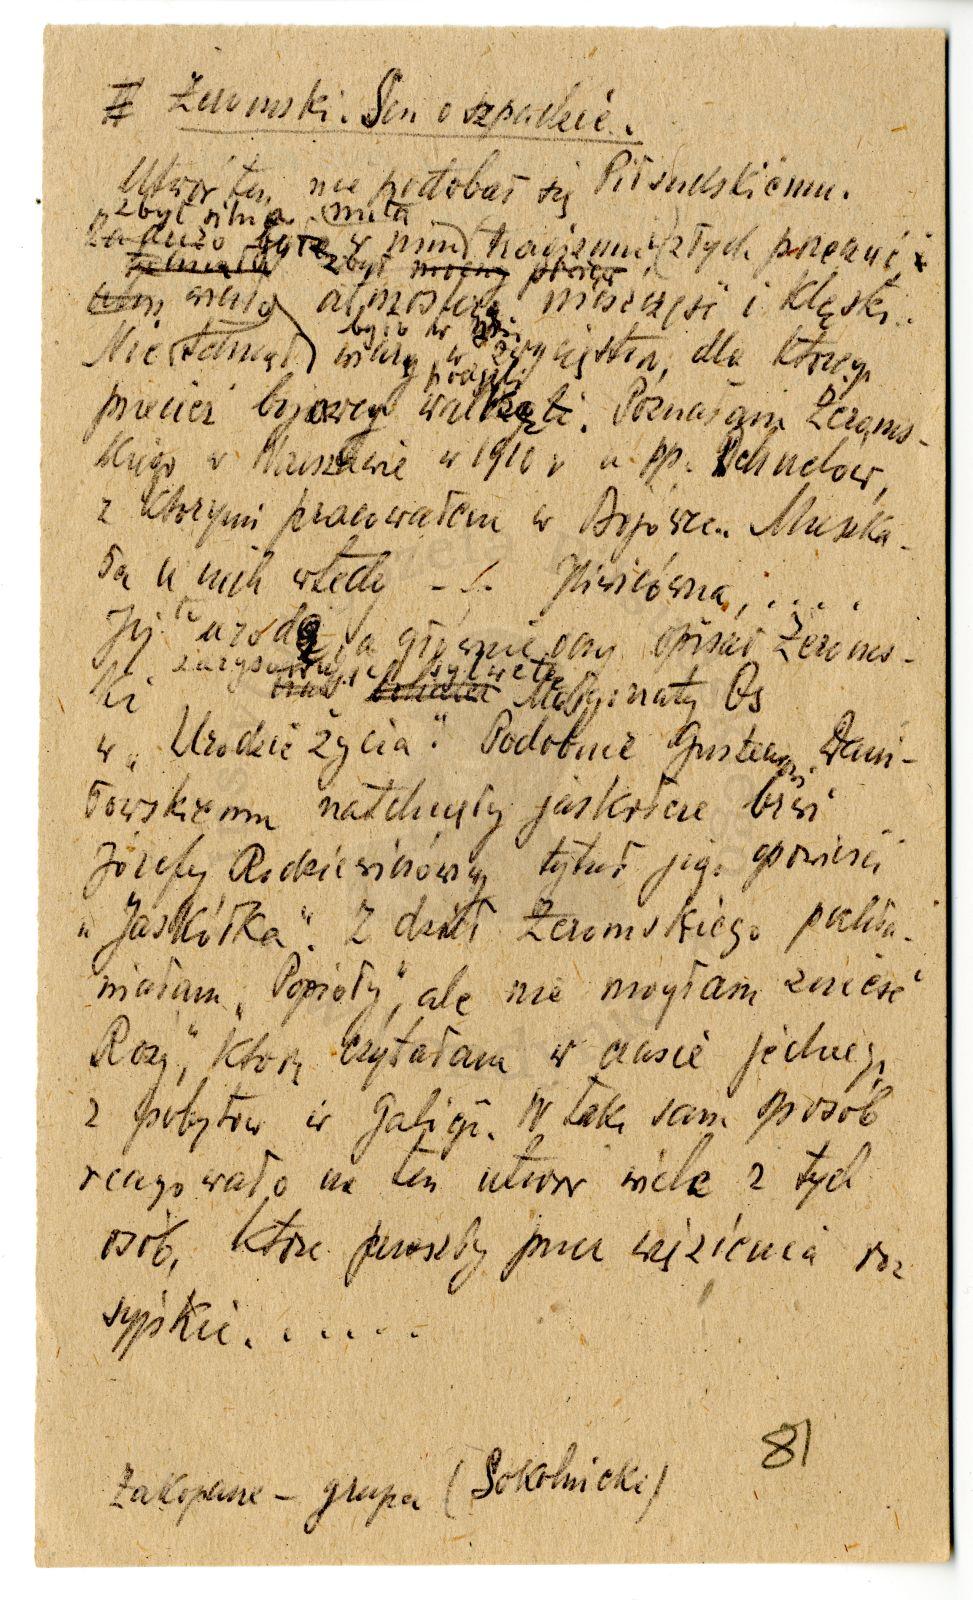 II Żeromski. Sen o szpadzie.
Utwór ten nie podobał się Piłsudskiemu.
zbyt silna nuta
Za dużo było w nim tragizmu złych przeczuć, i
zbyt mocny
wiało atmosferą nieszczęść i klęski.
było w
Nie tchnął wiarą w zwycięstwo, dla którego
podjęli
przecież bojowcy walkę. Poznałam Żeroms-
kiego w Warszawie w 1910 r u pp.
z którymi pracowałam w Bojówce. Mieszka-
ła u nich wtedy - . . . .
Jej tę urodę, a głównie oczy opisał Żeroms-
zarysowując sylwetkę
ki Małgorzaty Os
w „Urodzie życia". Podobnie Gustawowi Dani-
łowskiemu natchnęły jaskółcze brwi
Józefy Rodziewiczówny tytuł jego opowieści
„Jaskółka". Z dzieł Żeromskiego pochła-
niałam „Popioły", ale nie mogłam znieść
Róży", którą czytałam w czasie jednego
z pobytów w Galicji. W taki sam sposób
reagowało na ten utwór wiele z tych
osób, które przeszły przez więzienia ro
syjskie. . . . . .
81
Zakopane - grupa (Sokolnicki)